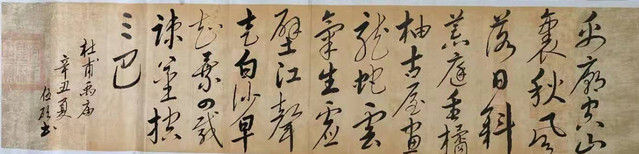 禹廟空山
裏秋風
落日斜
荒庭垂橘
柚古屋畫
龍蛇雲
氣生虛
壁江聲
走白沙早
知乘四載
疎鑿控
三巴
杜甫禹庙
辛丑夏
书